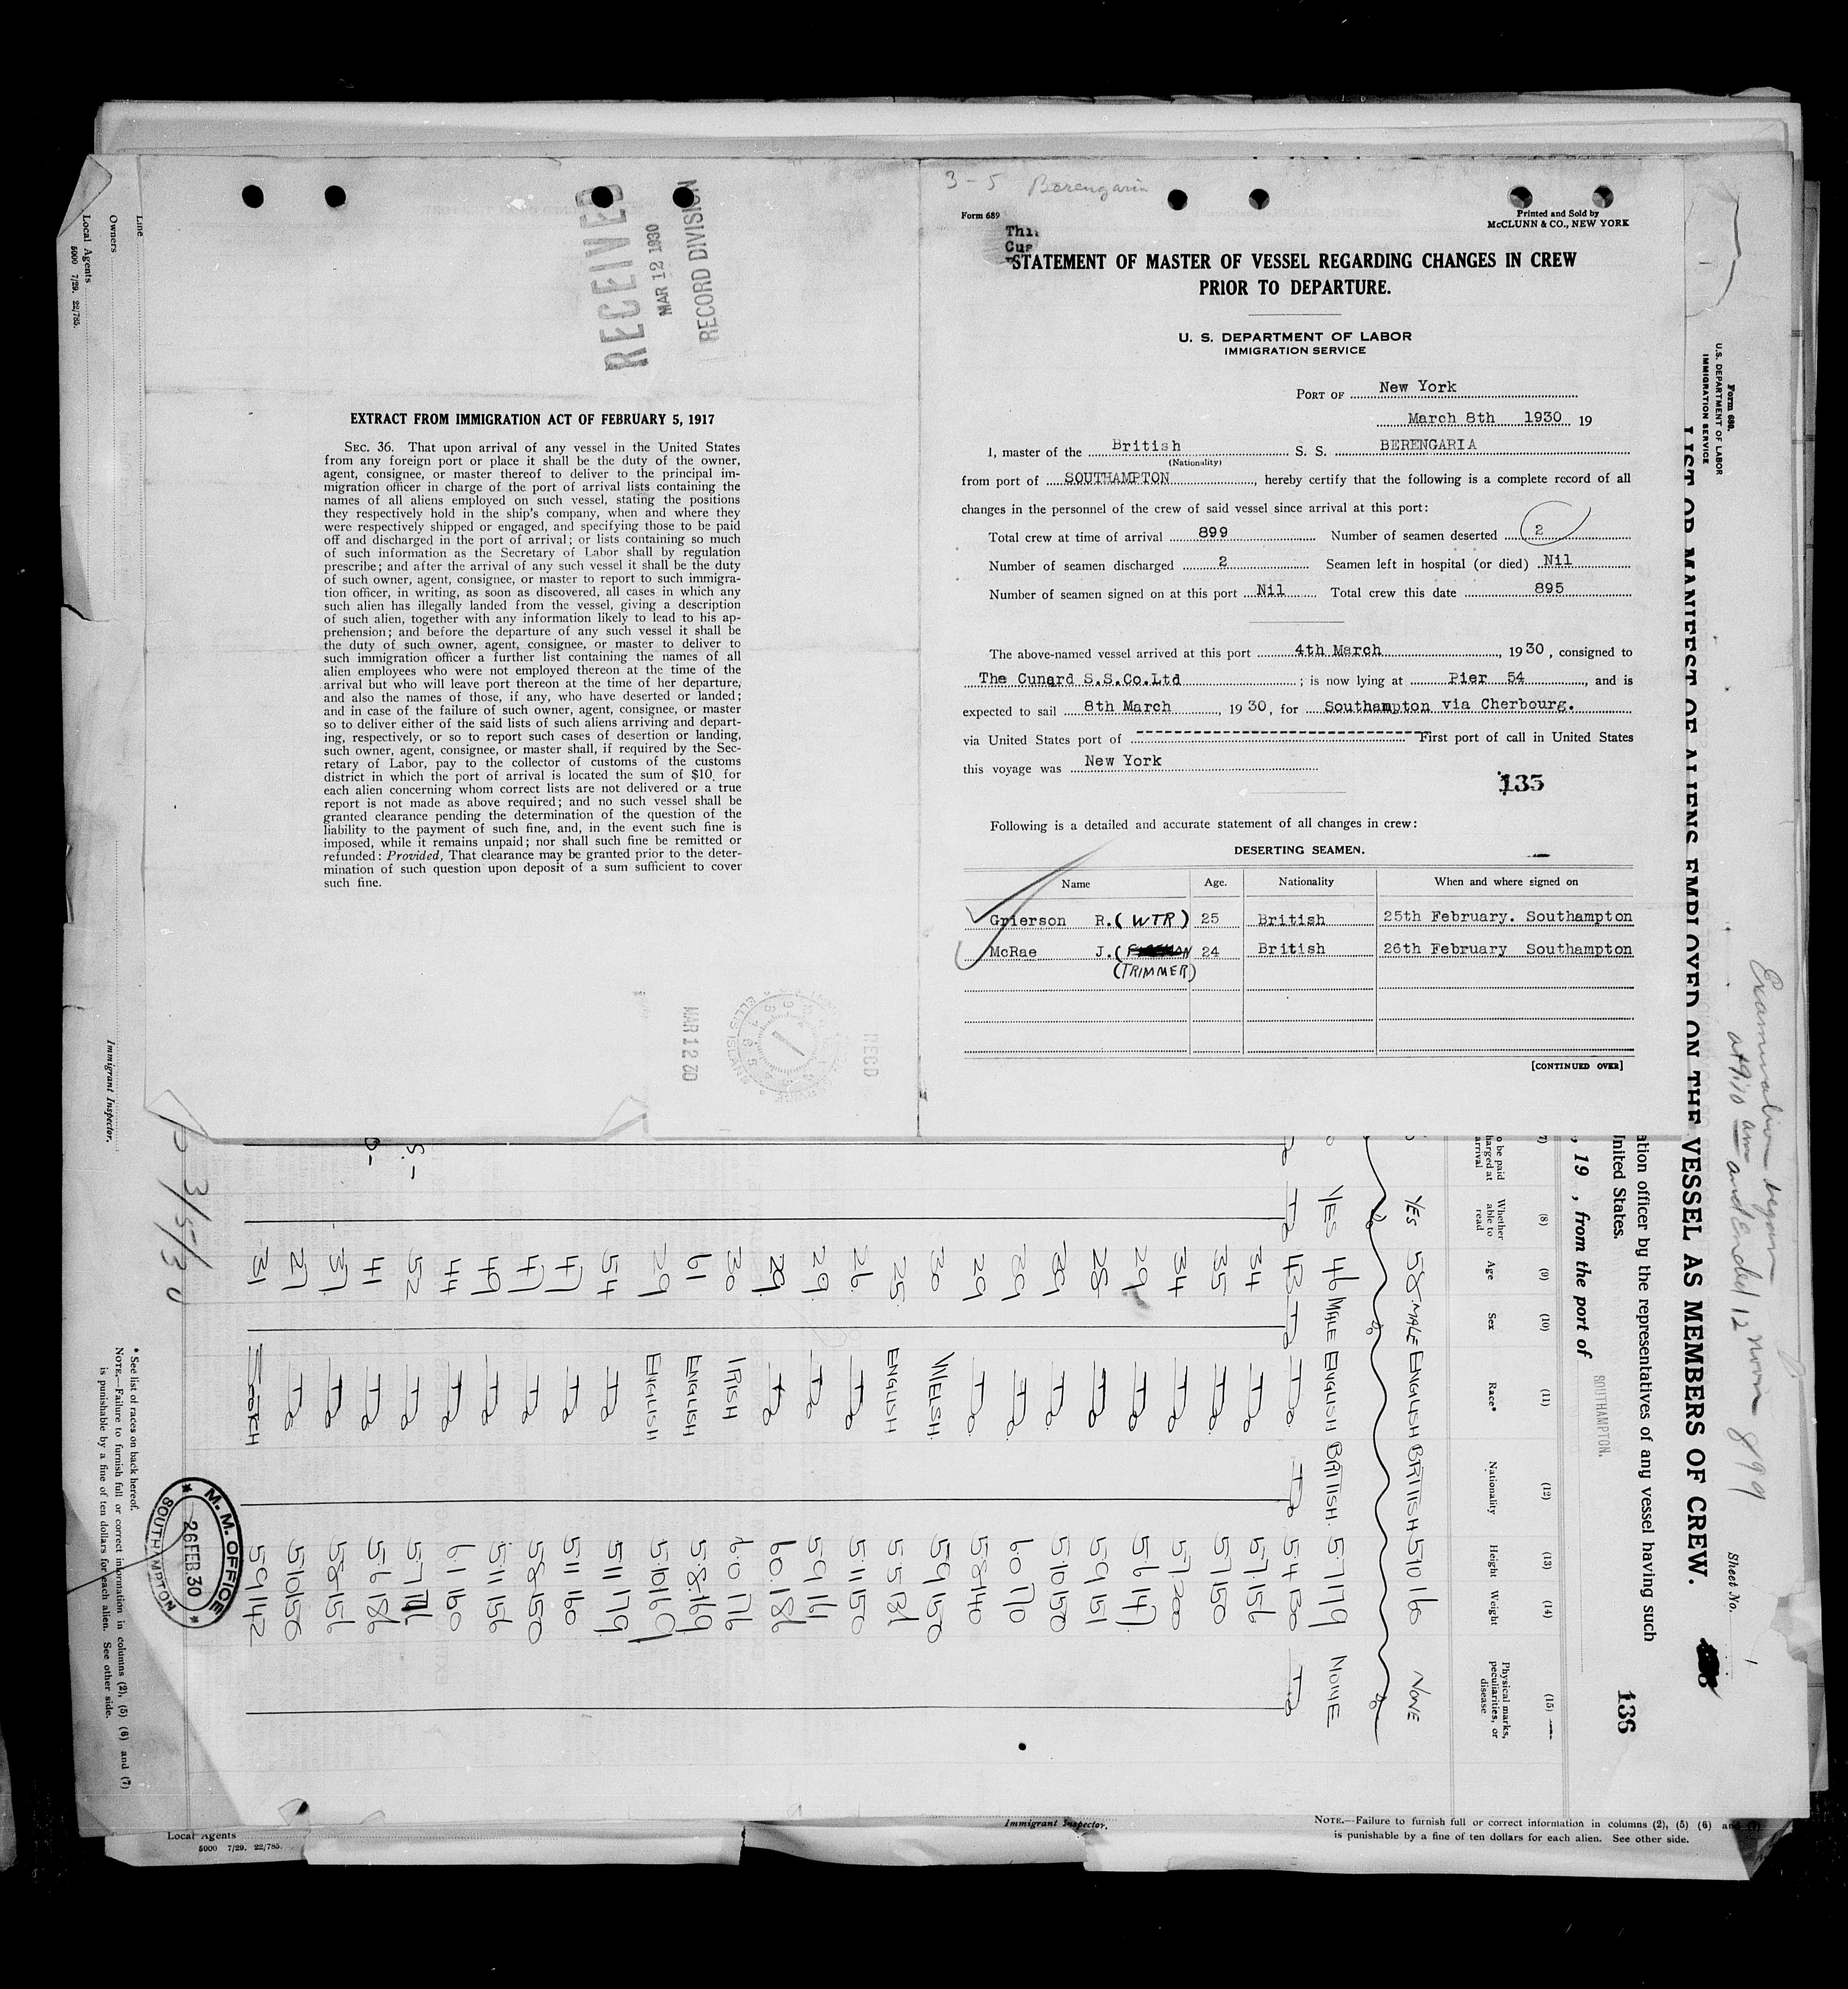 3-5 Berengaria
Form 689
Printed and Sold by
McCLUNN & CO., NEW YORK
STATEMENT OF MASTER OF VESSEL REGARDING CHANGES IN CREW
PRIOR TO DEPARTURE.
U. S. DEPARTMENT OF LABOR
IMMIGRATION SERVICE
PORT OF New York
March 8th 1930 19
I, master of the British S. S. BERENGARIA
(Nationality)
from port of SOUTHAMPTON, hereby certify that the following is a complete record of all
changes in the personnel of the crew of said vessel since arrival at this port:
Total crew at time of arrival 899 Number of seamen deserted 2
Number of seamen discharged 2 Seamen left in hospital (or died) Nil
Number of seamen signed on at this port Nil Total crew this date 895
The above-named vessel arrived at this port 4th March, 1930, consigned to
The Cunard S.S.Co.Ltd; is now lying at Pier 54, and is
expected to sail 8th March, 1930, for Southampton via Cherbourg.
via United States port of First port of call in United States
this voyage was New York
135
Following is a detailed and accurate statement of all changes in crew:
DESERTING SEAMEN.
Name Age. Nationality When and where signed on
Grierson R. (WTR) 25 British 25th February. Southampton
McRae J. 24 British 26th February Southampton
(TRIMMER)
[CONTINUED OVER]
RECEIVED
MAR 12 1930
RECORD DIVISION
EXTRACT FROM IMMIGRATION ACT OF FEBRUARY 5, 1917
SEC. 36. That upon arrival of any vessel in the United States
from any foreign port or place it shall be the duty of the owner,
agent, consignee, or master thereof to deliver to the principal im-
migration officer in charge of the port of arrival lists containing the
names of all aliens employed on such vessel, stating the positions
they respectively hold in the ship's company, when and where they
were respectively shipped or engaged, and specifying those to be paid
off and discharged in the port of arrival; or lists containing so much
of such information as the Secretary of Labor shall by regulation
prescribe; and after the arrival of any such vessel it shall be the duty
of such owner, agent, consignee, or master to report to such immigra-
tion officer, in writing, as soon as discovered, all cases in which any
such alien has illegally landed from the vessel, giving a description
of such alien, together with any information likely to lead to his ap-
prehension; and before the departure of any such vessel it shall be
the duty of such owner, agent, consignee, or master to deliver to
such immigration officer a further list containing the names of all
alien employees who were not employed thereon at the time of the
arrival but who will leave port thereon at the time of her departure,
and also the names of those, if any, who have deserted or landed;
and in case of the failure of such owner, agent, consignee, or master
so to deliver either of the said lists of such aliens arriving and depart-
ing, respectively, or so to report such cases of desertion or landing,
such owner, agent, consignee, or master shall, if required by the Sec-
retary of Labor, pay to the collector of customs of the customs
district in which the port of arrival is located the sum of $10 for
each alien concerning whom correct lists are not delivered or a true
report is not made as above required; and no such vessel shall be
granted clearance pending the determination of the question of the
liability to the payment of such fine, and, in the event such fine is
imposed, while it remains unpaid; nor shall such fine be remitted or
refunded: Provided, That clearance may be granted prior to the deter-
mination of such question upon deposit of a sum sufficient to cover
such fine.
REC'D
Form 680.
U.S. DEPARTMENT OF LABOR
IMMIGRATION SERVICE
LIST OR MANIFEST OF ALIENS EMPLOYED ON THE VESSEL AS MEMBERS OF CREW.
Examination begun
at 9:10 am and Ended 12 noon 899
Sheet No. 1
136
ation officer by the representatives of any vessel having such
United States.
, 19 , from the port of SOUTHAMPTON.
(8) (9) (10) (11) (12) (13) (14) (15)
Whether able to read Age Sex Race* Nationality Height Weight Physical marks, peculiarities, or disease
YES 58 MALE ENGLISH BRITISH 510 NONE
YES 46 MALE ENGLISH BRITISH. 57 179 NONE
Do 43 Do Do Do 54 Do
34 Do 57 156
35 Do 57 150
34 Do 57 200
29 Do 56 147
28 Do 59 151
39 Do 510 150
39 Do 60 170
29 Do 58 140
30 WELSH. 59 150
25 ENGLISH 55 131
26 Do 511 150
29 Do 59 161
29 Do 60 186
30 IRISH 60 176
61 ENGLISH 58 169
29 ENGLISH 510 169
54 Do 511 179
47 Do 511 160
47 Do 58 150
49 Do 511 156
44 Do 61 160
52 Do 57
41 Do 56 186
37 Do 58 156
27 Do 510 156
31 SCOTCH 59 142
3/5/30
M. M. OFFICE
26 FEB 30
SOUTHAMPTON
* See list of races on back hereof.
NOTE.—Failure to furnish full or correct information in columns (2), (5) (6) and (7)
is punishable by a fine of ten dollars for each alien. See other side.
Immigrant Inspector.
Line
Owners
Local Agents
5000 7/29. 22/785.
Local Agents
5000 7/29. 22/785.
Immigrant Inspector.
NOTE.—Failure to furnish full or correct information in columns (2), (5) (6) and (7)
is punishable by a fine of ten dollars for each alien. See other side.